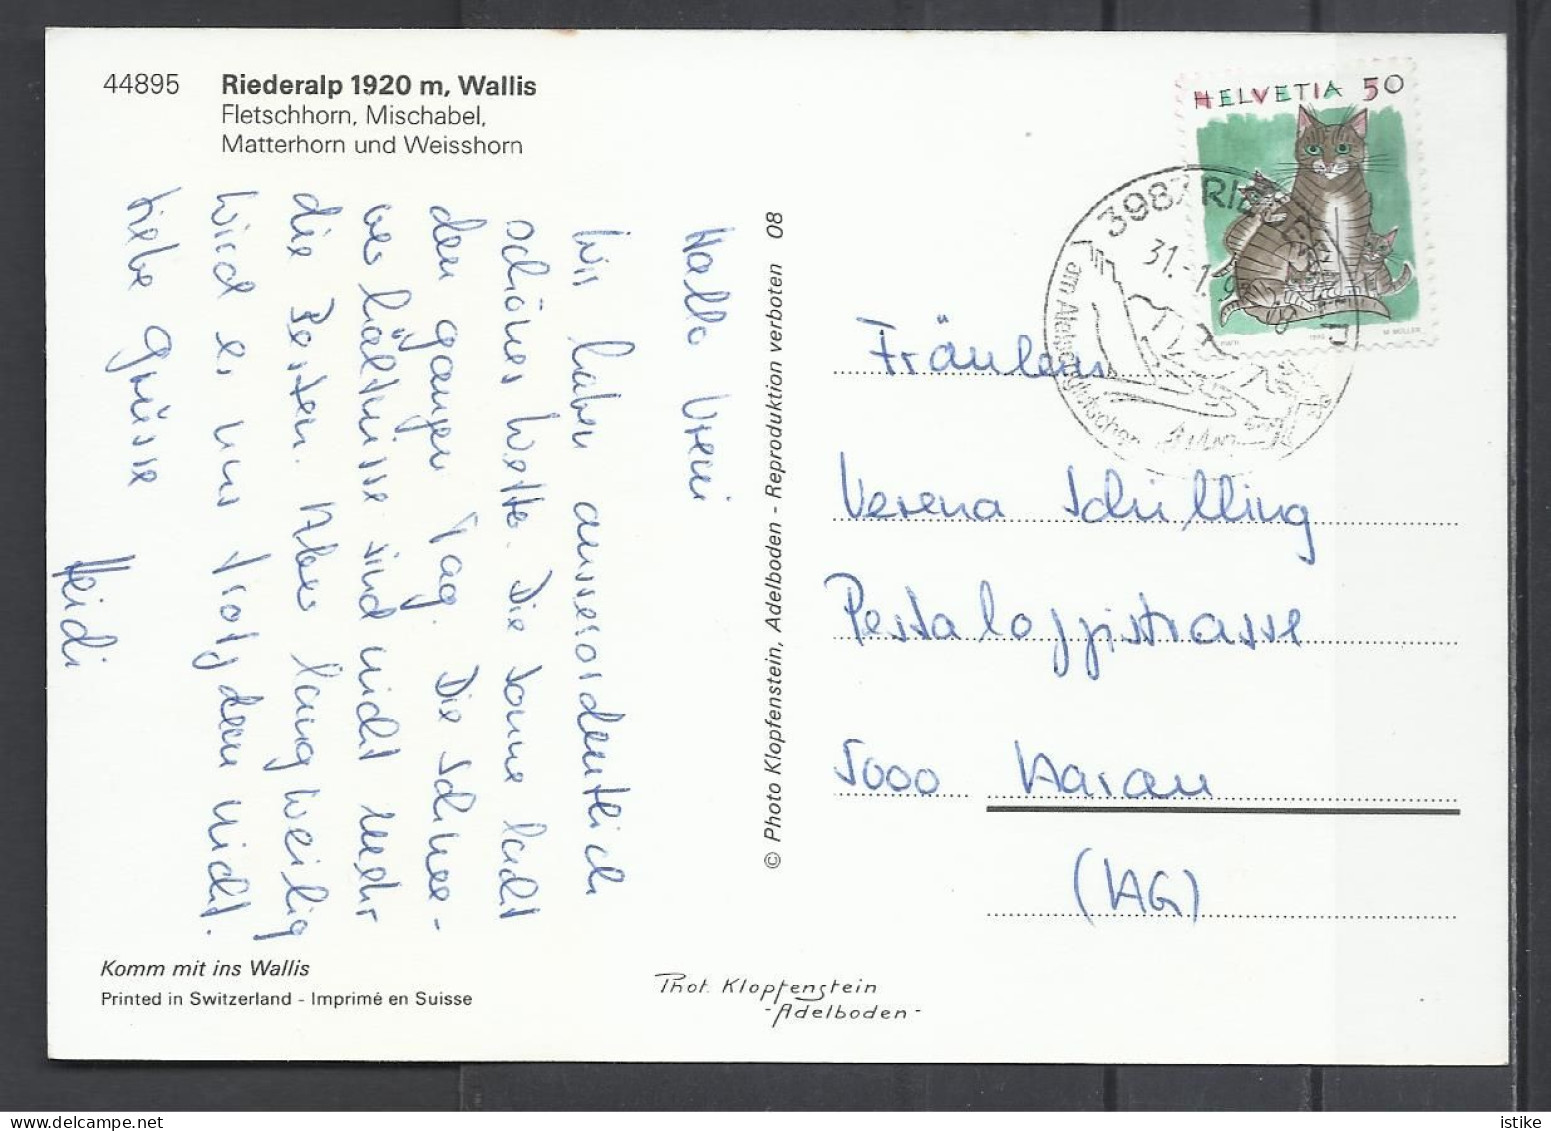 44895 Riederalp 1920 m, Wallis
Fletschhorn, Mischabel,
Matterhorn und Weisshorn
Hallo Vreni
Wir haben ausserordentlich
schönes Wetter. Die Sonne lacht
den ganzen Tag. Die Schnee-
verhältnisse sind nicht mehr
die Besten. Aber langweilig
wird es uns trotzdem nicht.
Liebe Grüsse
Heidi
Komm mit ins Wallis
Printed in Switzerland - Imprimé en Suisse
© Photo Klopfenstein, Adelboden - Reproduktion verboten 08
Phot. Klopfenstein
- Adelboden -
HELVETIA 50
M. MÜLLER
3987 RIEDERALP
31.-1.9
am Aletschgletscher
Fräulein
Verena Schilling
Pestalozzistrasse
5000 Aarau
(AG)
istike